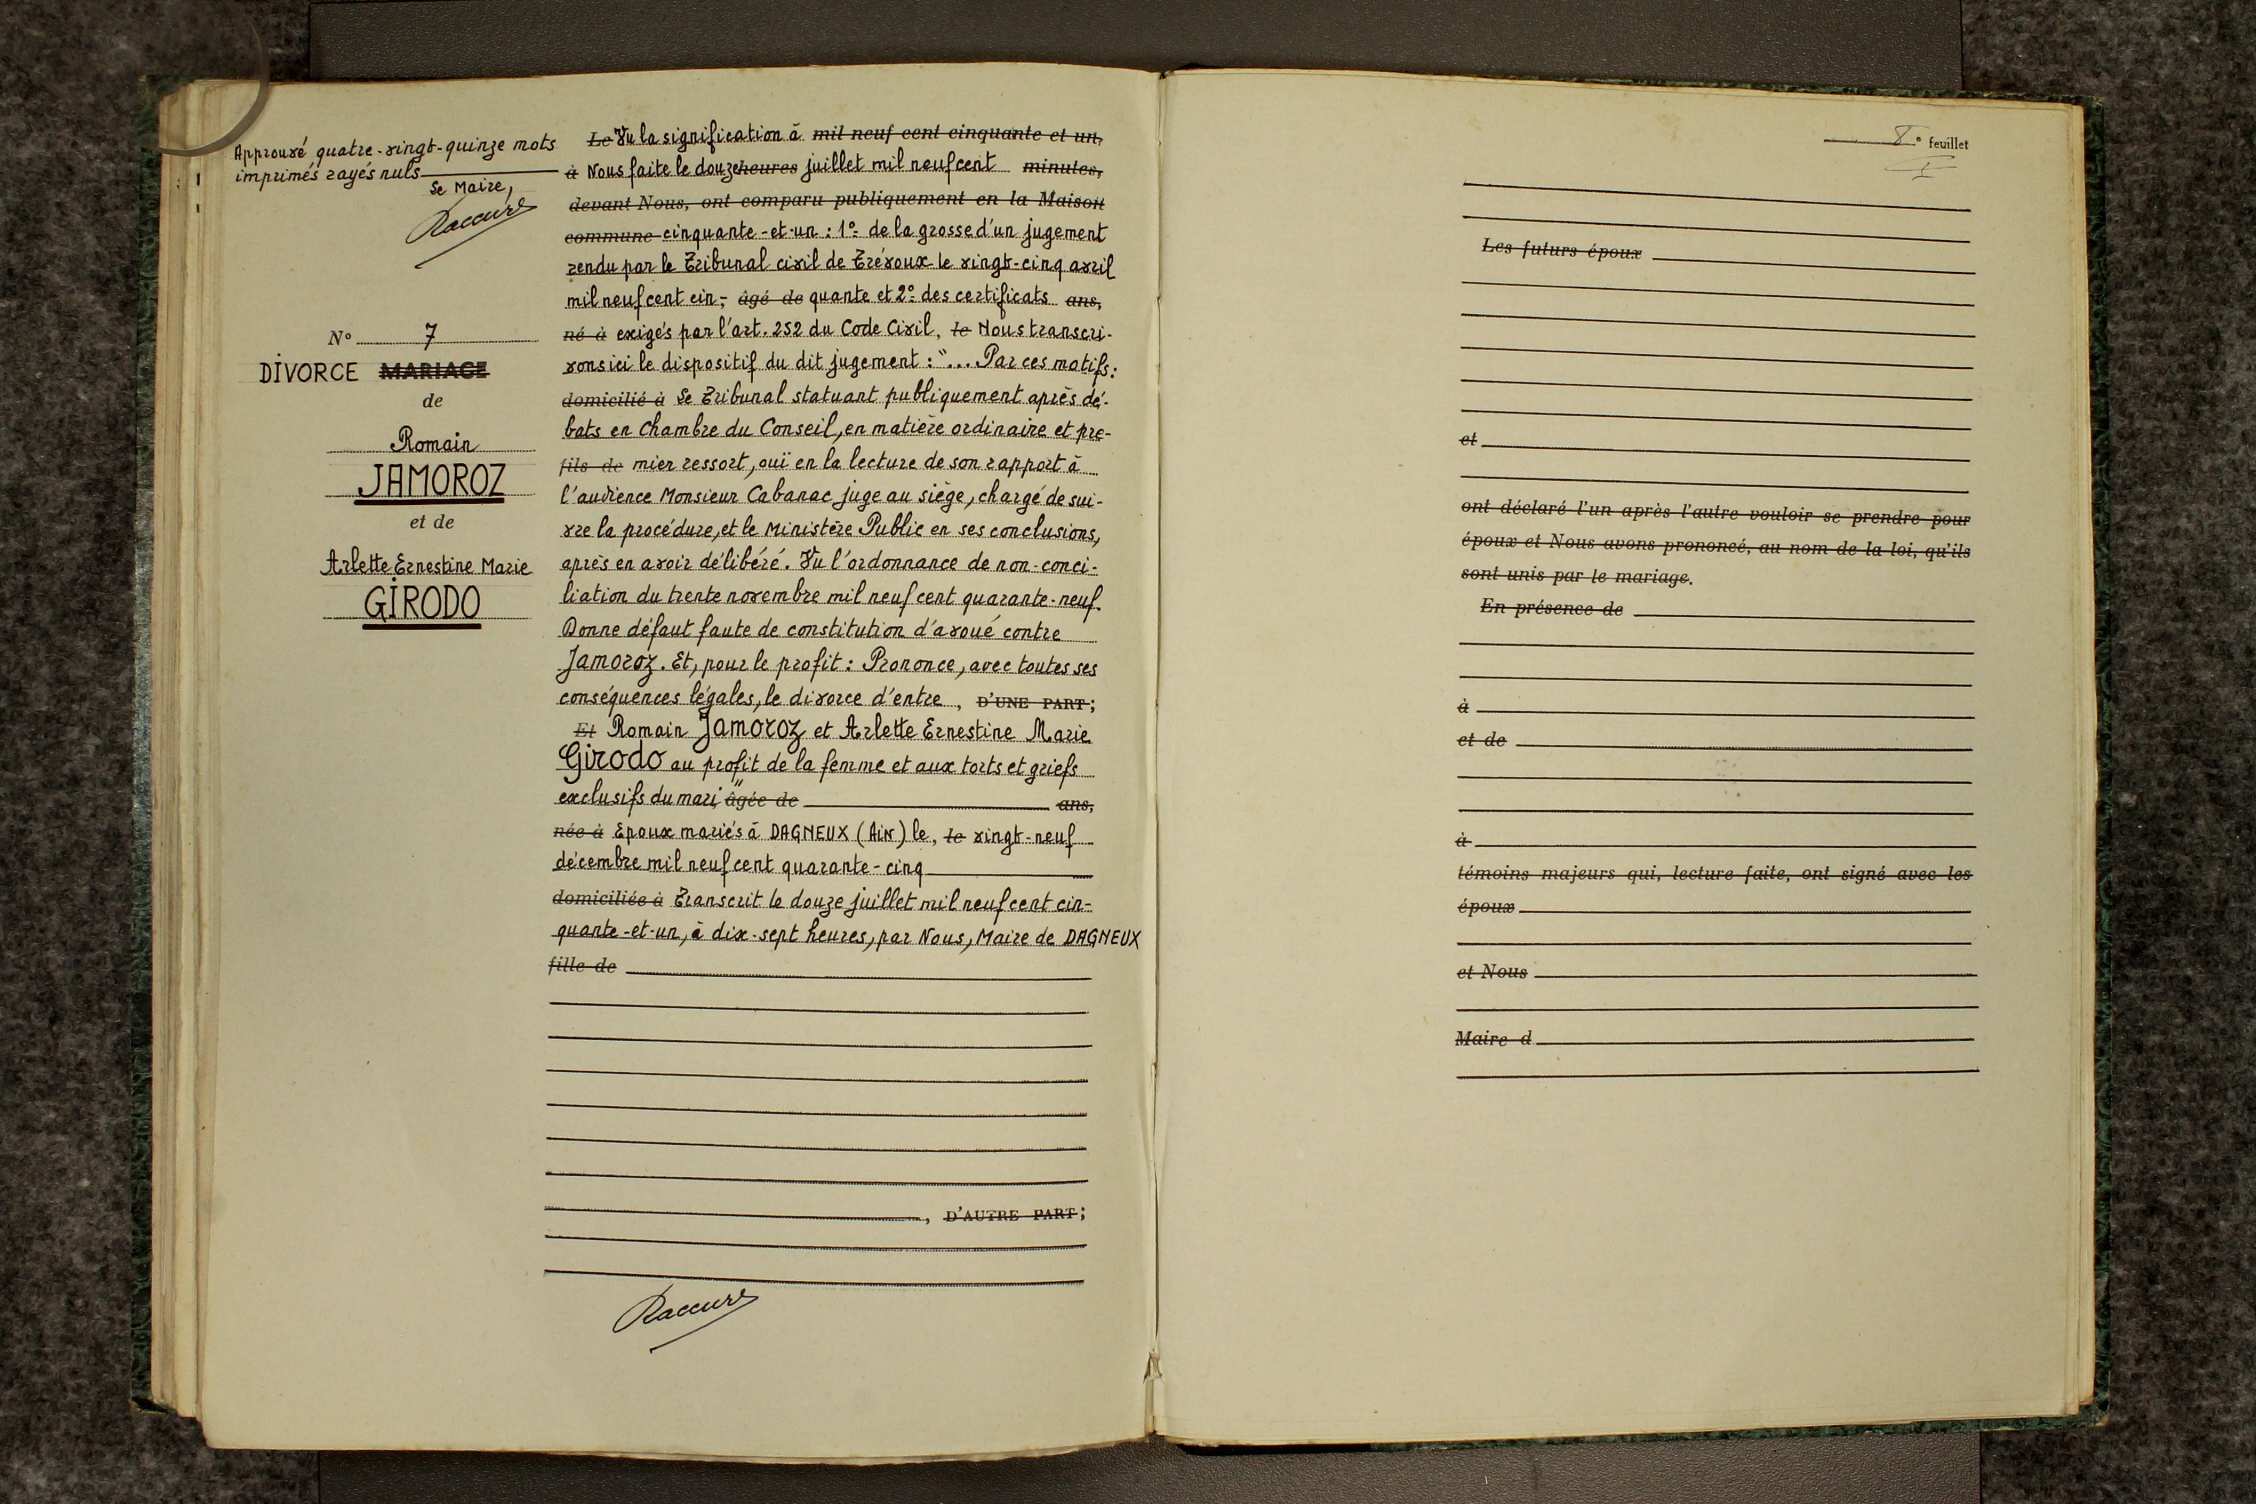 Approuvé quatre-vingt-quinze mots
imprimés rayés nuls
Le Maire,
Nº 7
DIVORCE MARIAGE
de
Romain
JAMOROZ
et de
Arlette Ernestine Marie
GIRODO
Le Vu la signification à mil neuf cent cinquante et un,
à Nous faite le douze heures juillet mil neuf cent minutes,
devant Nous, ont comparu publiquement en la Maison
commune cinquante-et-un : 1º- de la grosse d'un jugement
rendu par le Tribunal civil de Trévoux le vingt-cinq avril
mil neuf cent cin- âgé de quante et 2º- des certificats ans,
né à exigés par l'art. 252 du Code Civil, le Nous transcri-
vons ici le dispositif du dit jugement : "... Par ces motifs :
domicilié à Le Tribunal statuant publiquement après dé-
bats en Chambre du Conseil, en matière ordinaire et pre-
fils de mier ressort, ouï en la lecture de son rapport à
l'audience Monsieur Cabanac juge au siège, chargé de sui-
vre la procédure, et le Ministère Public en ses conclusions,
après en avoir délibéré. Vu l'ordonnance de non-conci-
liation du trente novembre mil neuf cent quarante-neuf.
Donne défaut faute de constitution d'avoué contre
Jamoroz. Et, pour le profit : Prononce, avec toutes ses
conséquences légales, le divorce d'entre , D'UNE PART ;
Et Romain Jamoroz et Arlette Ernestine Marie
Girodo au profit de la femme et aux torts et griefs
exclusifs du mari" âgée de ans,
née à Epoux mariés à DAGNEUX (AIN) le, le vingt-neuf
décembre mil neuf cent quarante-cinq
domiciliée à Transcrit le douze juillet mil neuf cent cin-
quante-et-un, à dix-sept heures, par Nous, Maire de DAGNEUX
fille de
, D'AUTRE PART ;
8e feuillet
Les futurs époux
et
ont déclaré l'un après l'autre vouloir se prendre pour
époux et Nous avons prononcé, au nom de la loi, qu'ils
sont unis par le mariage.
En présence de
à
et de
à
témoins majeurs qui, lecture faite, ont signé avec les
époux
et Nous
Maire d